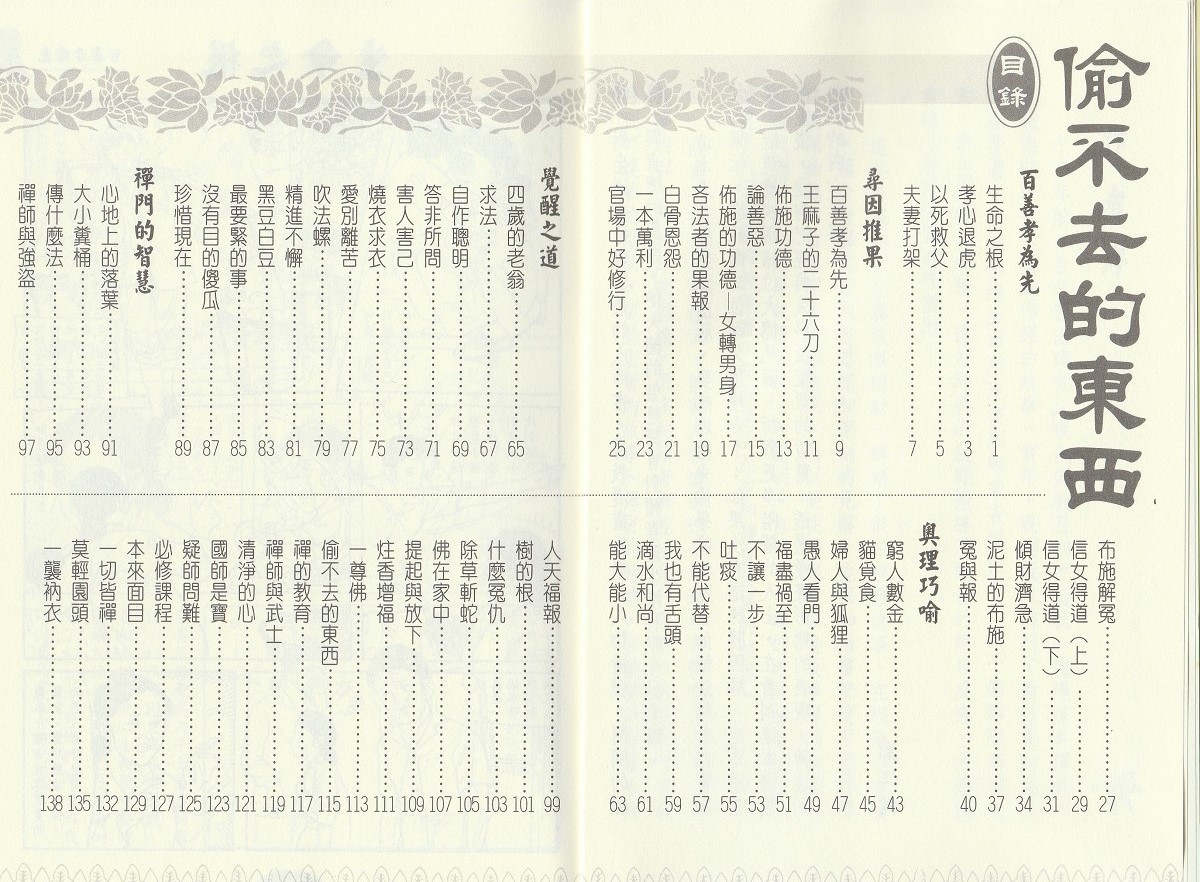 偷不去的東西
目錄
百善孝為先
生命之根 1
孝心退虎 3
以死救父 5
夫妻打架 7
尋因推果
百善孝為先 9
王麻子的二十六刀 11
佈施功德 13
論善惡 15
佈施的功德—女轉男身 17
吝法者的果報 19
白骨恩怨 21
一本萬利 23
官場中好修行 25
布施解冤 27
信女得道（上） 29
信女得道（下） 31
傾財濟急 34
泥土的布施 37
冤與報 40
奧理巧喻
窮人數金 43
貓覓食 45
婦人與狐狸 47
愚人看門 49
福盡禍至 51
不讓一步 53
吐痰 55
不能代替 57
我也有舌頭 59
滴水和尚 61
能大能小 63
覺醒之道
四歲的老翁 65
求法 67
自作聰明 69
答非所問 71
害人害己 73
燒衣求衣 75
愛別離苦 77
吹法螺 79
精進不懈 81
黑豆白豆 83
最要緊的事 85
沒有目的傻瓜 87
珍惜現在 89
禪門的智慧
心地上的落葉 91
大小糞桶 93
傳什麼法 95
禪師與強盜 97
人天福報 99
樹的根 101
什麼冤仇 103
除草斬蛇 105
佛在家中 107
提起與放下 109
炷香增福 111
一尊佛 113
偷不去的東西 115
禪的教育 117
禪師與武士 119
清淨的心 121
國師是寶 123
疑師問難 125
必修課程 127
本來面目 129
一切皆禪 132
莫輕園頭 135
一襲衲衣 138